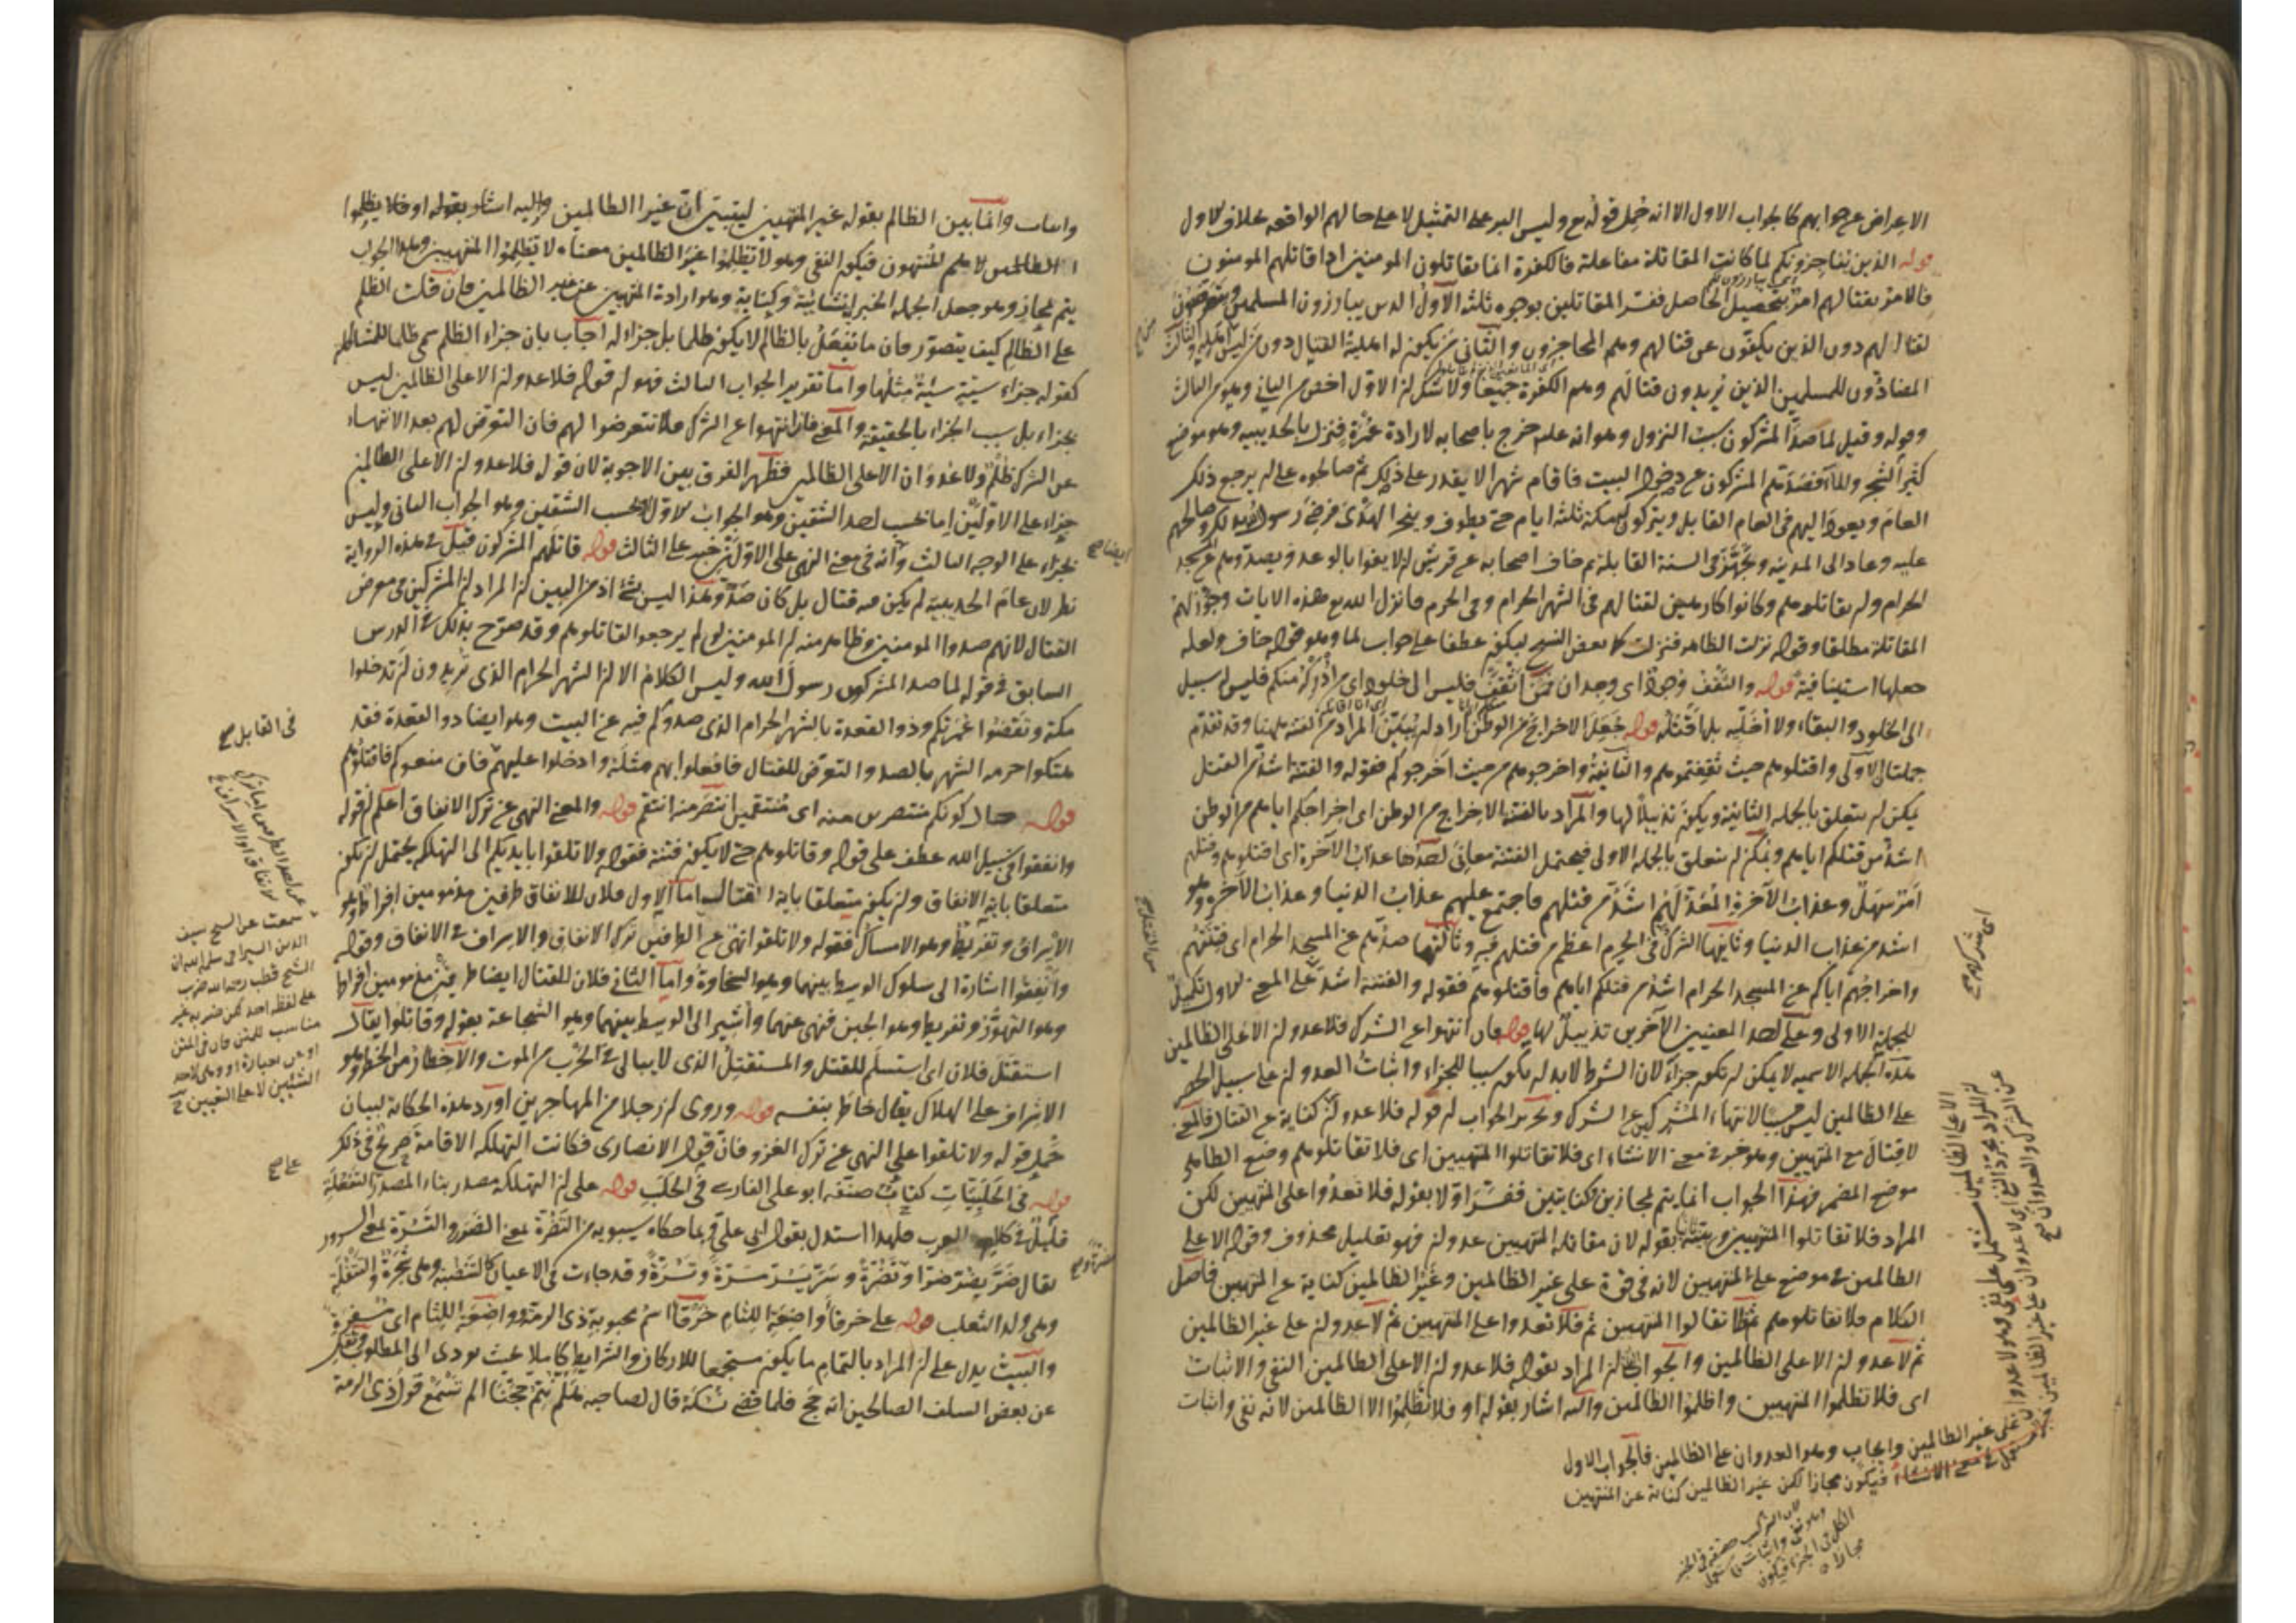 الاعراض عن جوابهم كالجواب الاول الا انه حمل قوله وليس البر على التمثيل لا على حالهم الواقعة بخلاف الاول
قوله الذين يناجزونكم لما كانت المقاتلة مفاعلة فالكفرة انما يقاتلون المومنين اذا قاتلهم المومنون
فالامر بقتالهم امر بتحصيل الحاصل ففسر المقاتلين بوجوه ثلثة الاول الذين يبارزون المسلمين
لقتالهم دون الذين يكفّون عن قتالهم وهم المحاجزون والثاني من يكون له اهلية القتال دون من ليس اهله والثالث
المضادّون للمسلمين الذين يريدون قتالهم وهم الكفرة جميعا ولا شك ان الاول اخص من الثاني وهو من الثالث
وقوله وقيل لما صد المشركون سبب النزول وهو انه عليه خرج باصحابه لارادة عمرة فنزل بالحديبية وهو موضع
كثير الشجر والماء فصدهم المشركون عن دخول البيت فاقام شهرا لا يقدر على ذلك ثم صالحوه على ان يرجع ذلك
العام ويعود اليهم في العام القابل ويتركون له مكة ثلثة ايام حتى يطوف وينحر الهدى فرضى رسول الله بذلك وصالحهم
عليه وعاد الى المدينة وتجهز في السنة القابلة ثم خاف اصحابه عن قريش ان لا يفوا بالوعد ويصدوهم عن المسجد
الحرام وان يقاتلوهم وكانوا كارهين لقتالهم في الشهر الحرام وفى الحرم فانزل الله هذه الايات وجوّز لهم
المقاتلة مطلقا وقوله نزلت الظاهر فنزلت كما بعض النسخ ليكون عطفا على جواب لما وهو قوله خاف ولعله
جعلها استينافية قوله والثقف وجود اى وجدان فمن اثقف فليس الى خلود اى من ادركه منكم فليس له سبيل
الى الخلود والبقاء ولا اخلّيه بل اقتله قوله جعل الاخراج من الوطن اراد ان يبين المراد من الفتنة ههنا وقد تقدم
جملتان الاولى واقتلوهم حيث ثقفتموهم والثانية واخرجوهم من حيث اخرجوكم فقوله والفتنة اشد من القتل
يمكن ان يتعلق بالجملة الثانية ويكون تذييلا لها والمراد بالفتنة الاخراج من الوطن اى اخراجكم اياهم من الوطن
اشد من قتلكم اياهم ويمكن ان يتعلق بالجملة الاولى فيحتمل الفتنة معانى احدها عذاب الآخرة اى اقتلوهم وقتلهم
امر سهل وعذاب الآخرة المعد لهم اشد من قتلهم فاجتمع عليهم عذاب الدنيا وعذاب الآخرة وهو
اشد من عذاب الدنيا وثانيها الشرك في الحرم اعظم من قتلهم فيه وثالثها صدهم عن المسجد الحرام اى فتنتهم
واخراجهم اياكم عن المسجد الحرام اشد من قتلكم اياهم فاقتلوهم فقوله والفتنة اشد على المعنى الاول تكميل
للجملة الاولى وعلى احد المعنيين الآخرين تذييل لها قوله فان انتهوا عن الشرك فلا عدوان الا على الظالمين
هذه الجملة الاسمية لا يمكن ان تكون جزاء لان الشرط لا بد ان يكون سببا للجزاء واثبات العدوان على سبيل الحصر
على الظالمين ليس مسببا لانتهاء المشركين عن الشرك وتحرير الجواب ان قوله فلا عدوان كناية عن القتال فالمعنى
لا قتال مع المنتهين وهو خبر في معنى الانشاء اى فلا تقاتلوا المنتهيين اى فلا تقاتلوهم وضع الظاهر
موضع المضمر فهذا الجواب انما يتم لمجازين كنايتين ففسر اولا بقوله فلا تعدوا على المنتهين لكن
المراد فلا تقاتلوا المنتهيين وبينه ثانيا بقوله لان مقاتلة المنتهيين عدوان فهو تعليل محذوف وقوله الا على
الظالمين في موضع على المنتهيين لانه في قوة على غير الظالمين وغير الظالمين كناية عن المنتهيين فاصل
الكلام فلا تقاتلوهم ثم لا تقاتلوا المنتهيين ثم فلا تعدوا على المنتهيين ثم لا عدوان على غير الظالمين
ثم لا عدوان الا على الظالمين والجواب الثانى ان المراد بقوله فلا عدوان الا على الظالمين النفى والاثبات
اى فلا تظلموا المنتهيين واظلموا الظالمين واليه اشار بقوله او فلا تظلموا الا الظالمين لانه نفى واثبات
على غير الظالمين وايجاب وهو العدوان على الظالمين فالجواب الاول
فيكون مجازا لكن غير الظالمين كناية عن المنتهين
واثبات وانما بين الظالم بقوله غير المنتهيين ليتبين ان غير الظالمين واليه اشار بقوله او فلا تظلموا
الا الظالمين لا هم المنتهون فيكون النفى وهو لا تظلموا غير الظالمين معناه لا تظلموا المنتهيين وهذا الجواب
يتم بمجاز وهو جعل الجملة الخبرية انشائية وكناية وهو ارادة المنتهيين عن غير الظالمين فان قلت الظلم
على الظالم كيف يتصور فان ما تفعل بالظالم لا يكون ظلما بل جزاء له اجاب بان جزاء الظلم سمى ظلما للمشاكلة
كقوله جزاء سيئة سيئة مثلها واما تقرير الجواب الثالث فهو ان قوله فلا عدوان الا على الظالمين ليس
بجزاء بل سبب الجزاء بالحقيقة والمعنى فان انتهوا عن الشرك فلا تتعرضوا لهم فان التعرض لهم بعد الانتهاء
عن الشرك ظلم ولا عدوان الا على الظالمين فظهر الفرق بين الاجوبة لان قوله فلا عدوان الا على الظالمين
جزاء على الاولين اما بحسب احد الشقين وهو الجواب الاول او بحسب الشقين وهو الجواب الثانى وليس
بجزاء على الوجه الثالث وانه في معنى النهى على الاولين خبر على الثالث قوله قاتلهم المشركون قيل في هذه الرواية
نظر لان عام الحديبية لم يكن فيه قتال بل كان صد وهذا ليس بشئ اذ من البين ان المراد ان المشركين في معرض
القتال لانهم صدوا المومنين وظاهر منه ان المومنين لو لم يرجعوا لقاتلوهم وقد صرح بذلك في الدرس
السابق في قوله لما صد المشركون رسول الله وليس الكلام الا ان الشهر الحرام الذى تريدون ان تدخلوا
مكة وتقضوا عمرتكم وذو القعدة بالشهر الحرام الذى صدوكم فيه عن البيت وهو ايضا ذو القعدة فقد
هتكوا حرمة الشهر بالصد والتعرض للقتال فافعلوا بهم مثله وادخلوا عليهم فان منعوكم فاقتلوهم
قوله حال كونكم منتصرين منه اى منتقمين انتصر منه انتقم قوله والمعنى النهى عن ترك الانفاق اعلم ان قوله
وانفقوا في سبيل الله عطف على قوله وقاتلوهم حتى لا يكون فتنة فقوله ولا تلقوا بايديكم الى التهلكة يحتمل ان يكون
متعلقا باية الانفاق وان يكون متعلقا باية القتال اما الاول فلان للانفاق طرفين مذمومين افراط وهو
الاسراف وتفريط وهو الامساك فقوله ولا تلقوا نهى عن الطرفين ترك الانفاق والاسراف في الانفاق وقوله
وانفقوا اشارة الى سلوك الوسط بينهما وهو السخاوة واما الثانى فلان للقتال ايضا طرفين مذمومين افراط
وهو التهور وتفريط وهو الجبن فنهى عنهما واشير الى الوسط بينهما وهو الشجاعة بقوله وقاتلوا يقال
استقتل فلان اى استسلم للقتل والمستقتل الذى لا يبالى في الحرب من الموت والاخطار من الخطر وهو
الاشراف على الهلاك يقال خاطر بنفسه قوله وروى ان رجلا من المهاجرين اورد هذه الحكاية لبيان
حمل قوله ولا تلقوا على النهى عن ترك الغزو فان قول الانصارى فكانت التهلكة الاقامة صريح في ذلك
قوله في الحلبيات كتاب صنفه ابو على الفارسى في الحلب قوله على ان التهلكة مصدر بناء المصدر التفعلة
قليل في كلام العرب فلهذا استدل بقول ابى على بما حكاه سيبويه من التضرة بمعنى الضرر والتسرة بمعنى السرور
يقال ضر يضر ضرا وتضرة وسر يسر مسرة وتسرة وقد جاءت في الاعيان
وهى ولد الثعلب قوله على خرقاء واضعة اللثام خرقاء اسم محبوبة ذى الرمة وواضعة اللثام اى مسفرة
والبيت يدل على ان المراد بالتمام ما يكون مستجمعا للاركان والشرايط كاملا بحيث يودى الى المطلوب ونقل
عن بعض السلف الصالحين انه حج فلما قضى نسكه قال لصاحبه هلم نتم حجنا الم تسمع قول ذى الرمة
في القابل صح
سمعت عن الشيخ سيف
على صح